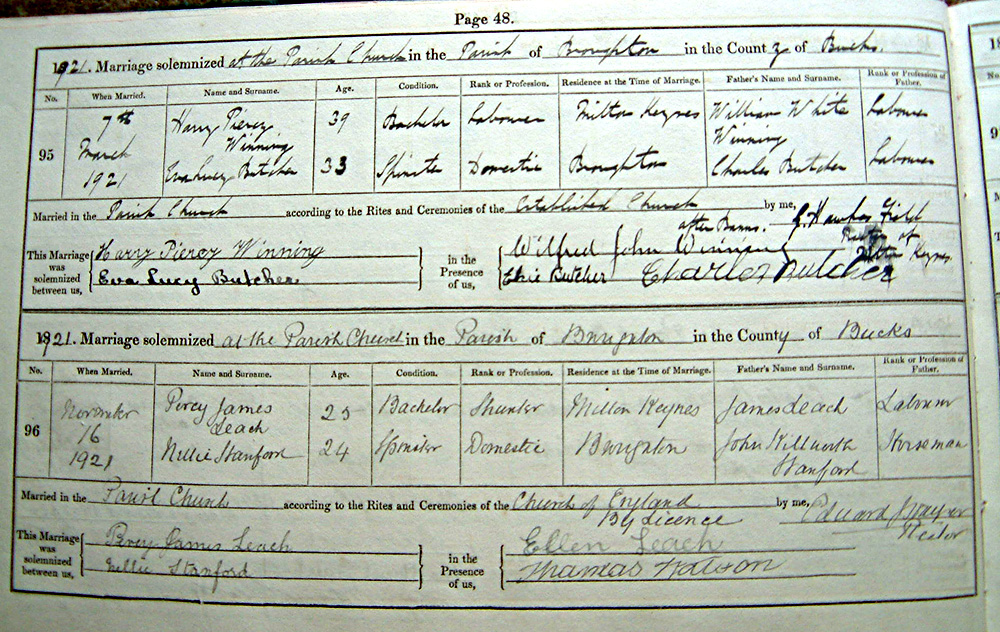 Page 48.
1921. Marriage solemnized at the Parish Church in the Parish of Broughton in the County of Bucks.
No. When Married. Name and Surname. Age. Condition. Rank or Profession. Residence at the Time of Marriage. Father's Name and Surname. Rank or Profession of Father.
95 7th March 1921 Harry Piercy Winning 39 Bachelor Labourer Milton Keynes William White Winning Labourer
Eva Lucy Butcher 33 Spinster Domestic Broughton Charles Butcher Labourer
Married in the Parish Church according to the Rites and Ceremonies of the Established Church by me,
after Banns. Field
Rector of
Milton Keynes
This Marriage was solemnized between us, Harry Piercy Winning in the Presence of us, Wilfred John Winning
Eva Lucy Butcher Elsie Butcher Charles Butcher
1921. Marriage solemnized at the Parish Church in the Parish of Broughton in the County of Bucks
No. When Married. Name and Surname. Age. Condition. Rank or Profession. Residence at the Time of Marriage. Father's Name and Surname. Rank or Profession of Father.
96 November 16 1921 Percy James Leach 25 Bachelor Shunter Milton Keynes James Leach Labourer
Nellie Stanford 24 Spinster Domestic Broughton John Willworth Stanford Horseman
Married in the Parish Church according to the Rites and Ceremonies of the Church of England by me, Edward
By Licence Rector
This Marriage was solemnized between us, Percy James Leach in the Presence of us, Ellen Leach
Nellie Stanford Thomas Watson